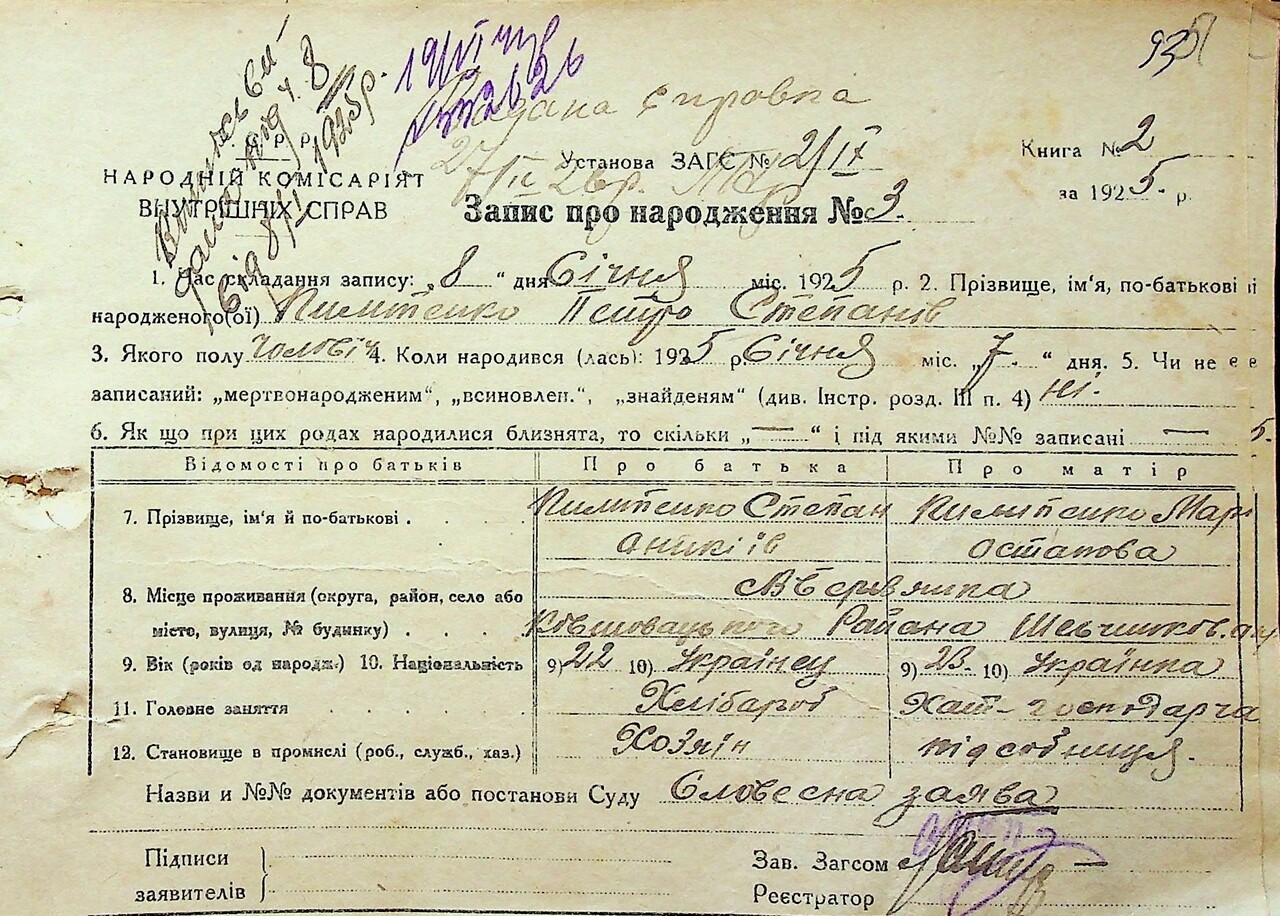 935
Видана справка
27/II 26р.
19/VI
С.Р.Р.
НАРОДНІЙ КОМІСАРІЯТ
ВНУТРІШНІХ СПРАВ
8/I 1925р.
Установа ЗАГС № 2/IX
Книга № 2
за 1925 р.
Запис про народження № 3.
1. Час складання запису: „8“ дня Січня міс. 1925 р. 2. Прізвище, ім'я, по-батькові
народженого(ої) Пилипенко Петро Степанів
3. Якого полу чоловіч 4. Коли народився (лась): 1925 р. Січня міс. „7.“ дня. 5. Чи не є
записаний: „мертвонародженим“, „всиновлен.“, „знайденям“ (див. Інстр. розд. III п. 4) ні.
6. Як що при цих родах народилися близнята, то скільки „—“ і під якими №№ записані —
Відомості про батьків Про батька Про матір
7. Прізвище, ім'я й по-батькові . Пилипенко Степан Пилипенко Мар
Оникіїв Остапова
8. Місце проживання (округа, район, село або
місто, вулиця, № будинку) . Ковшовацького Района Шевченков. ок
9. Вік (років од народж.) 10. Національність 9) 22 10) Українец 9) 23. 10) Українка
11. Головне заняття Хлібароб Хат-господарча
12. Становище в промислі (роб., служб., хаз.) Хозяін підсобниця.
Назви и №№ документів або постанови Суду Словесна заява
Підписи
заявителів
Зав. Загсом
Реєстратор